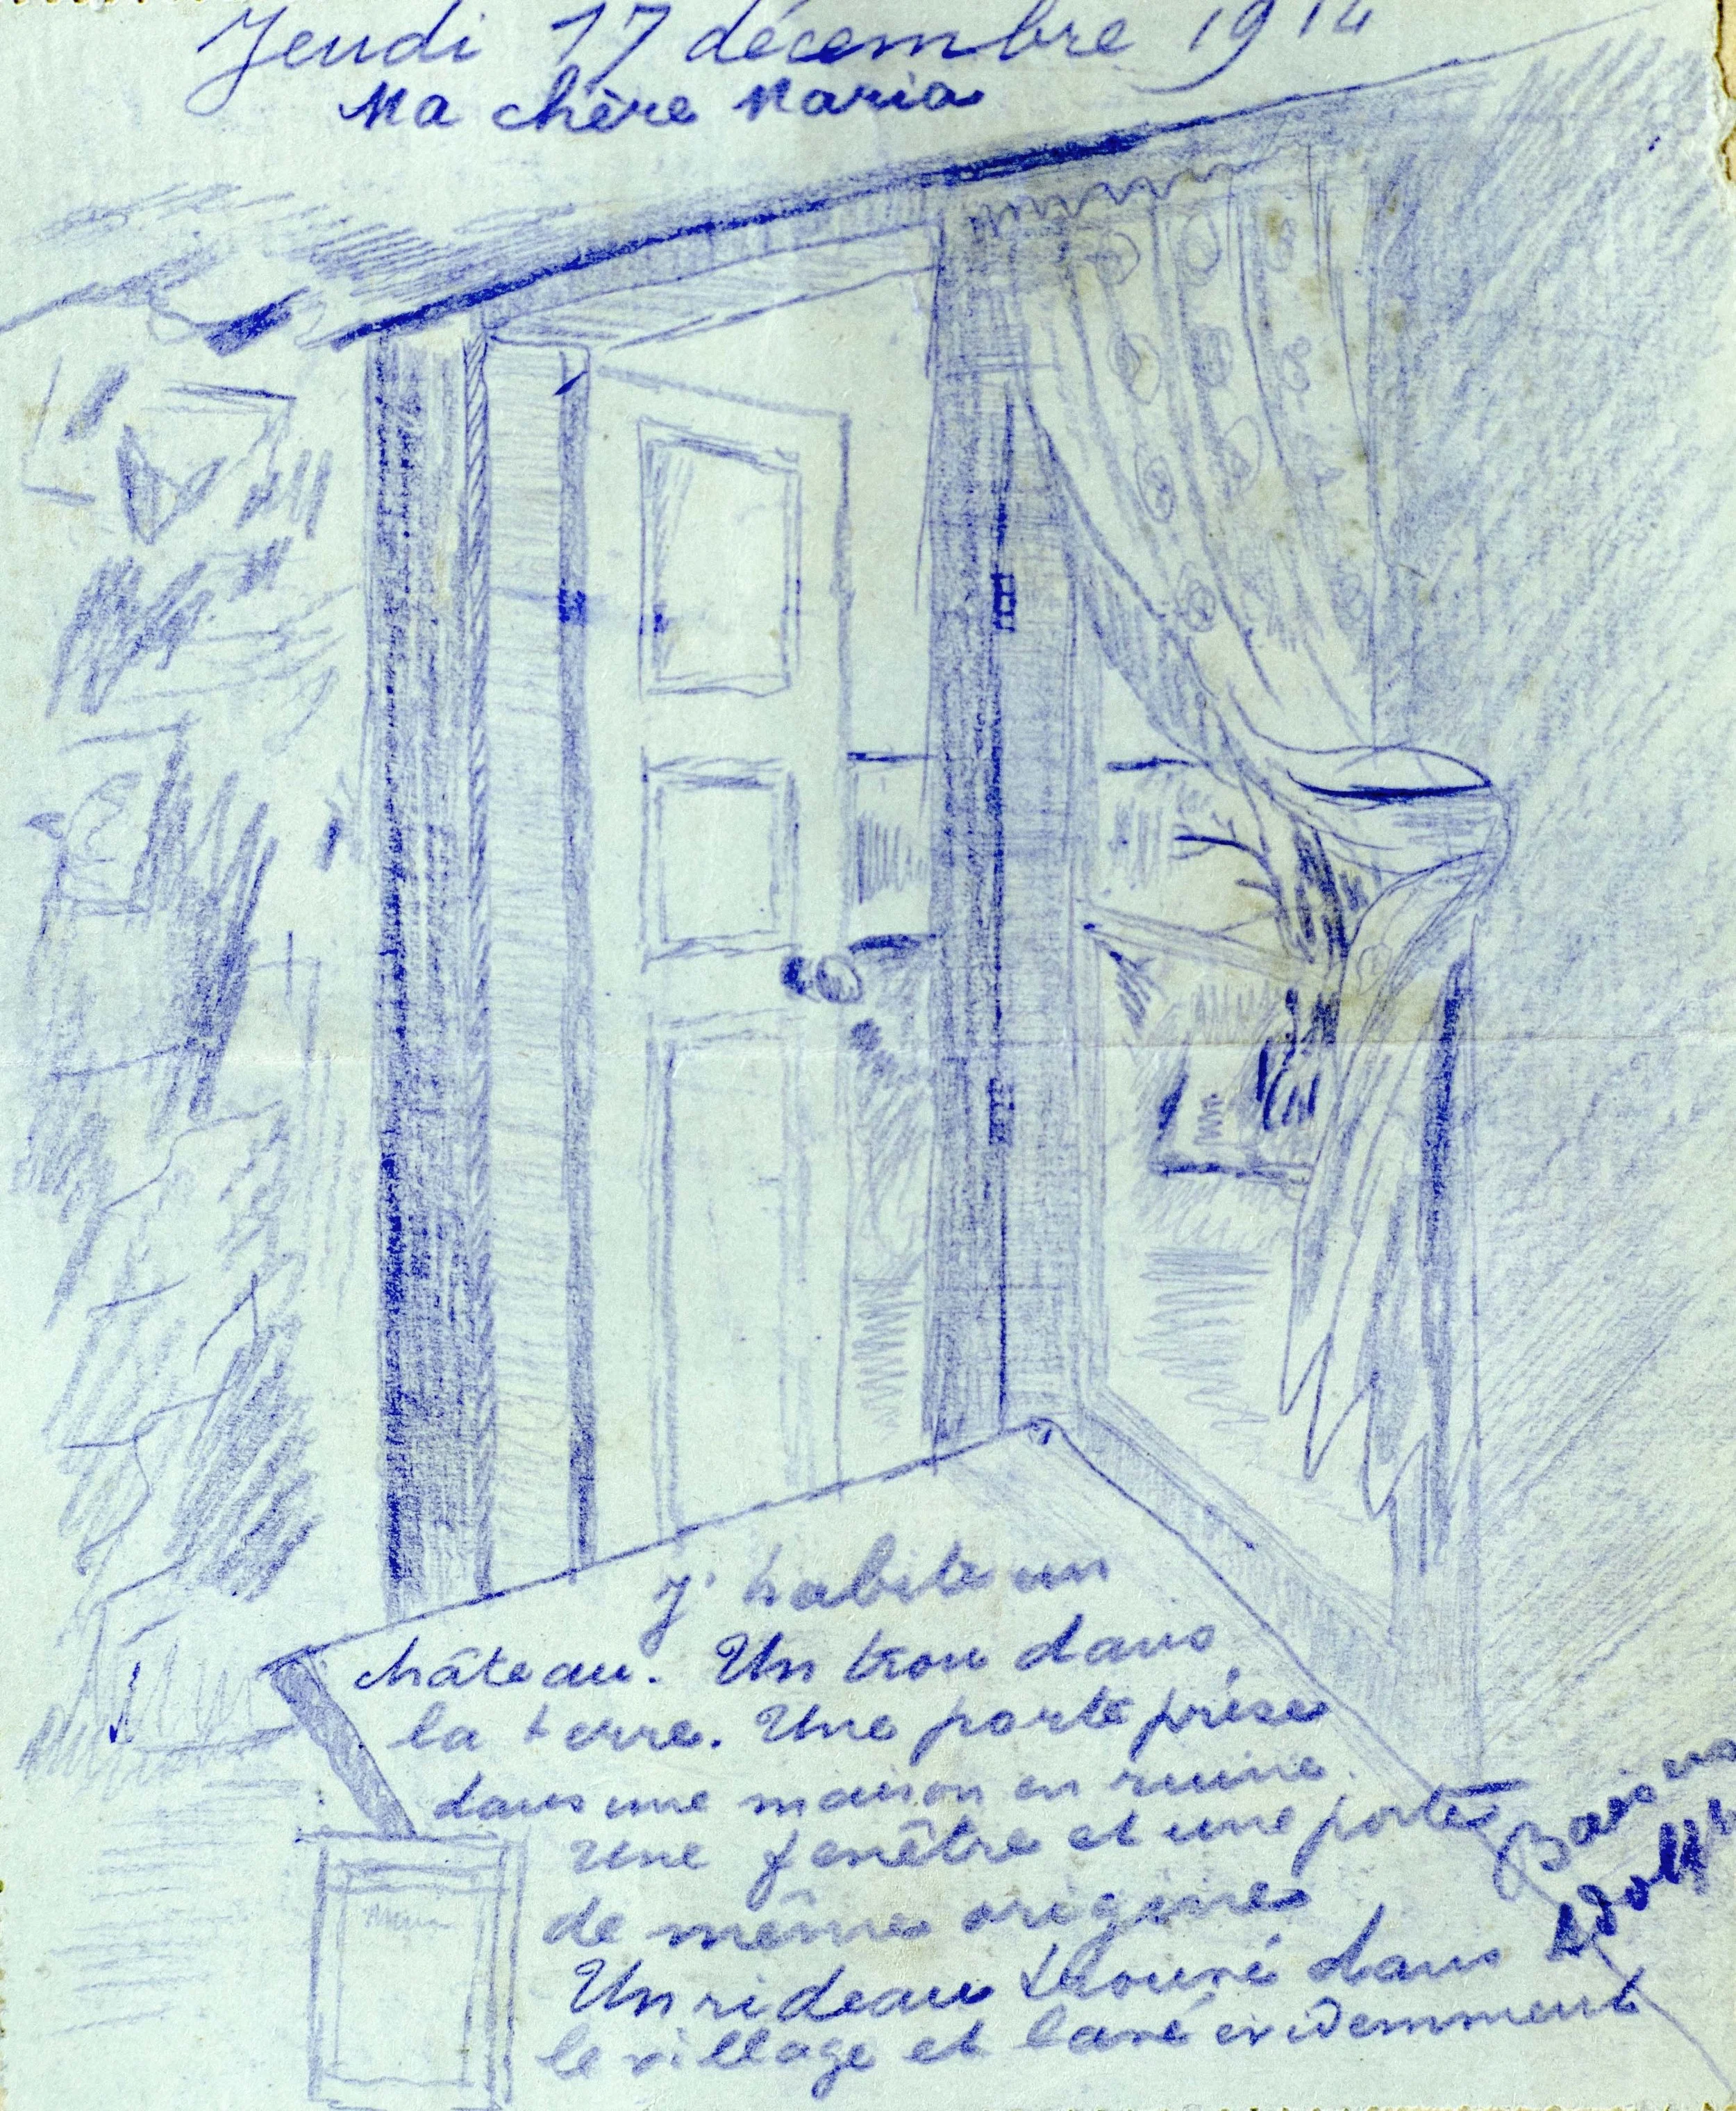 Jeudi 17 décembre 1914
Ma chère Maria
J'habite un
château. Un trou dans
la terre. Une porte prise
dans une maison en ruine.
une fenêtre et une porte
de même origine
Un rideau trouvé dans
le village et lavé evidemment
Baisers
Adolphe